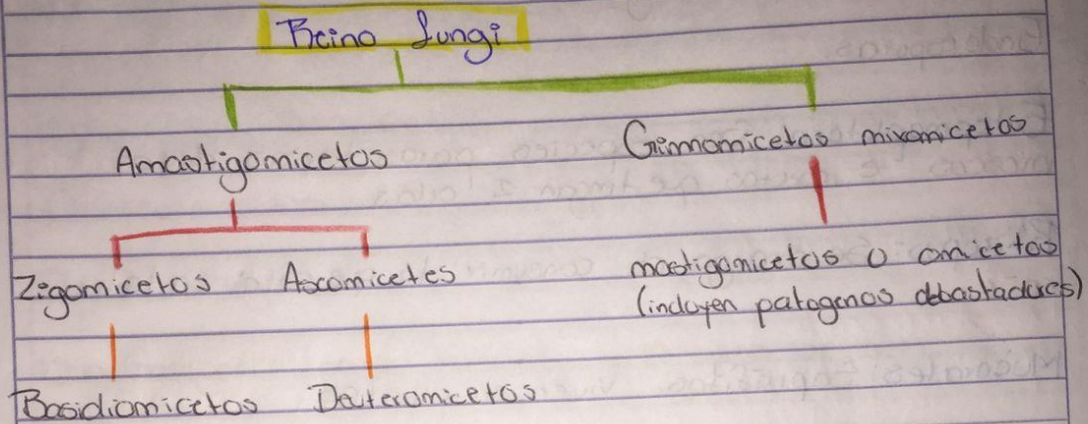 Reino fungi
Amastigomicetos
Gimnomicetos mixomicetos
Zigomicetos Ascomicetes
mastigomicetos o omicetos
(incluyen patogenos debastadores)
Basidiomicetos Deuteromicetos